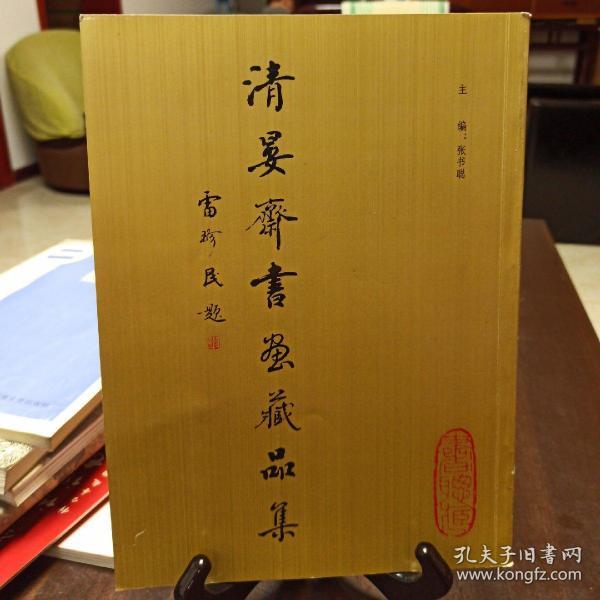 主编：张书聪
清晏齋書画藏品集
雷珍民题
孔夫子旧书网
www.kongfz.com